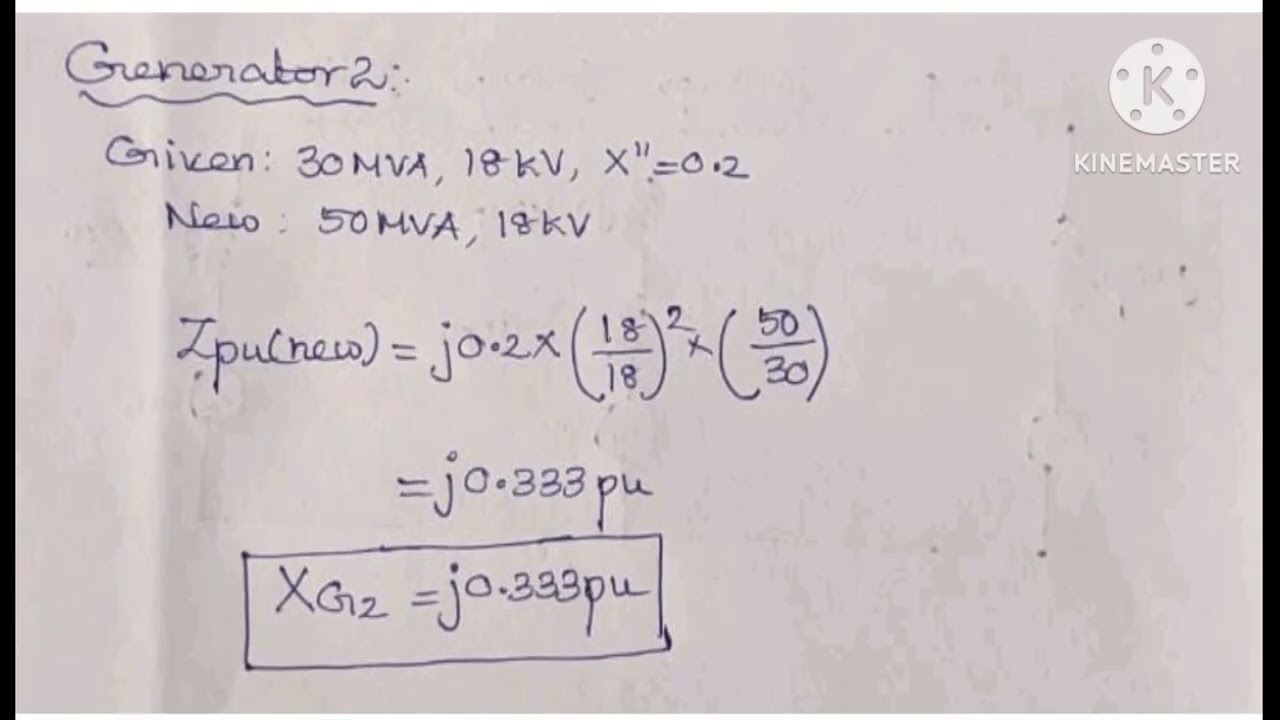 Generator 2:
Given: 30 MVA, 18 KV, X" = 0.2
New : 50 MVA, 18 KV
Zpu(new) = j0.2 × (18/18)² × (50/30)
= j0.333 pu
XG2 = j0.333 pu
K
KINEMASTER